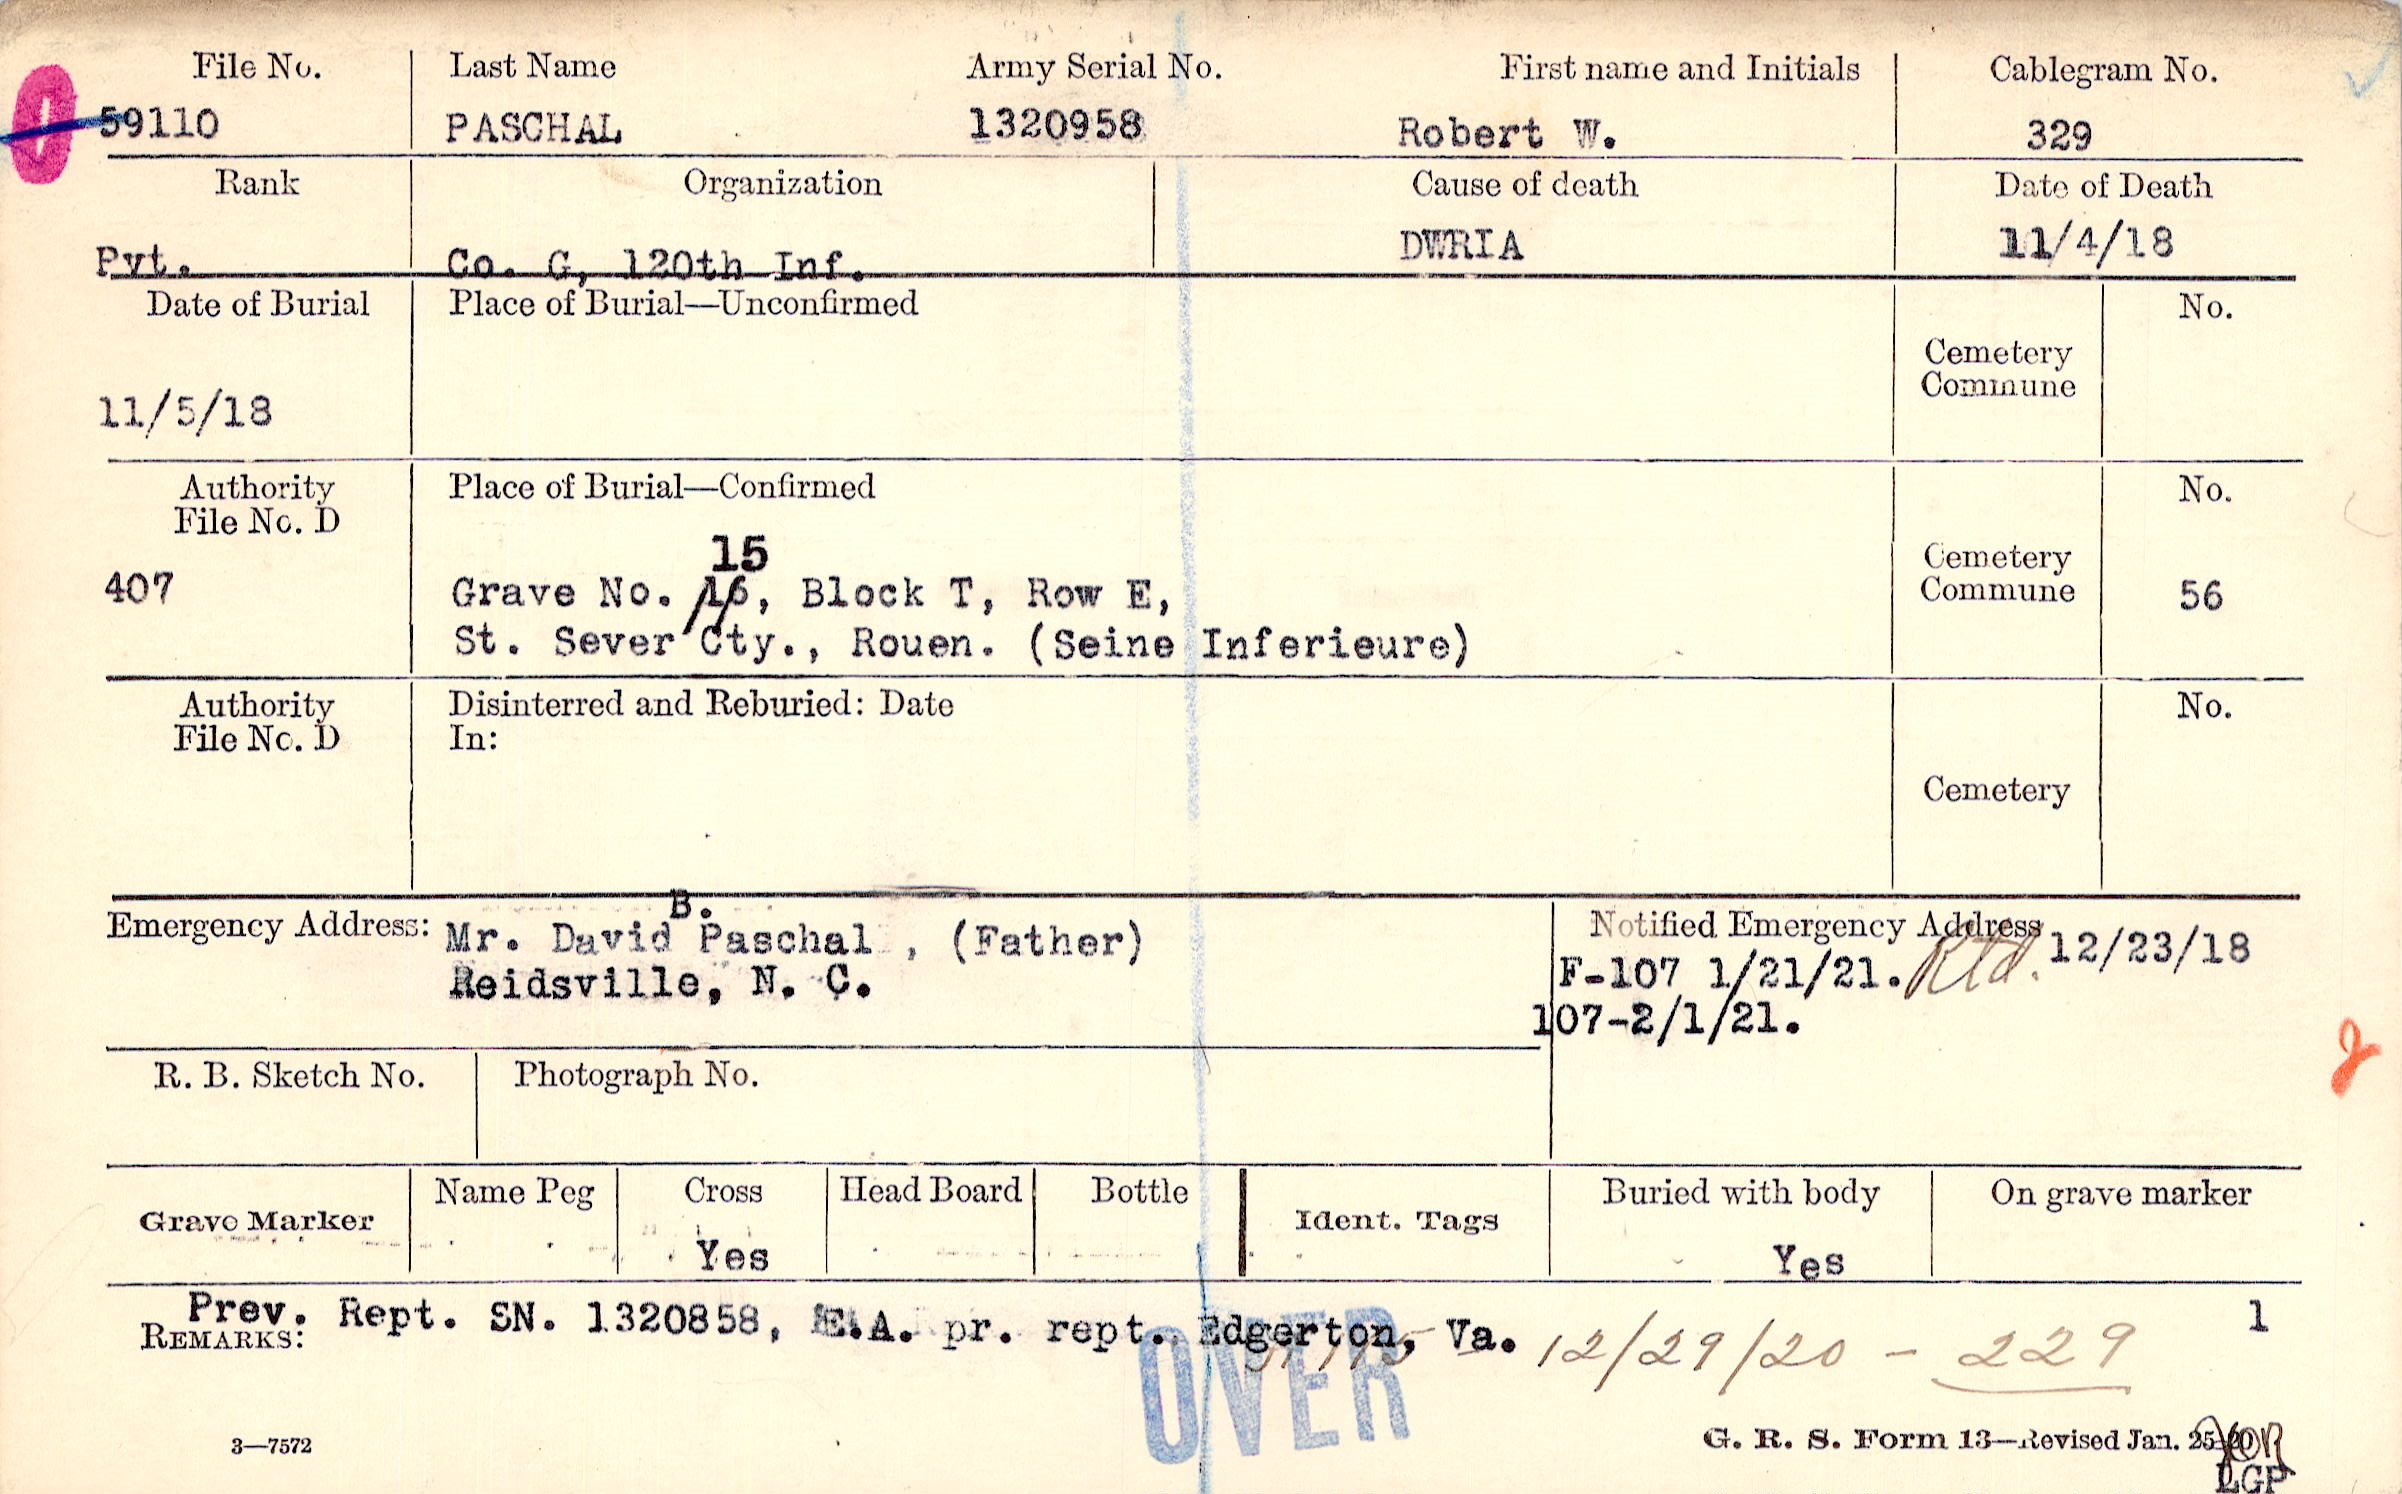 File No. Last Name Army Serial No. First name and Initials Cablegram No.
59110 PASCHAL 1320958 Robert W. 329
Rank Organization Cause of death Date of Death
Pvt. Co. G, 120th Inf. DWRIA 11/4/18
Date of Burial Place of Burial—Unconfirmed No.
Cemetery
Commune
11/5/18
Authority Place of Burial—Confirmed No.
File No. D
15
Cemetery
407 Grave No. 16, Block T, Row E, Commune 56
St. Sever Cty., Rouen. (Seine Inferieure)
Authority Disinterred and Reburied: Date No.
File No. D In:
Cemetery
B.
Emergency Address: Mr. David Paschal , (Father) Notified Emergency Address 12/23/18
Reidsville, N. C. F-107 1/21/21. Rtd.
107-2/1/21.
2
R. B. Sketch No. Photograph No.
Grave Marker Name Peg Cross Head Board Bottle Ident. Tags Buried with body On grave marker
Yes Yes
Prev. Rept. SN. 1320858, E.A. pr. rept. Edgerton, Va. 12/29/20 - 229 1
REMARKS:
OVER
3—7572 G. R. S. Form 13—Revised Jan. 25-20
LGP